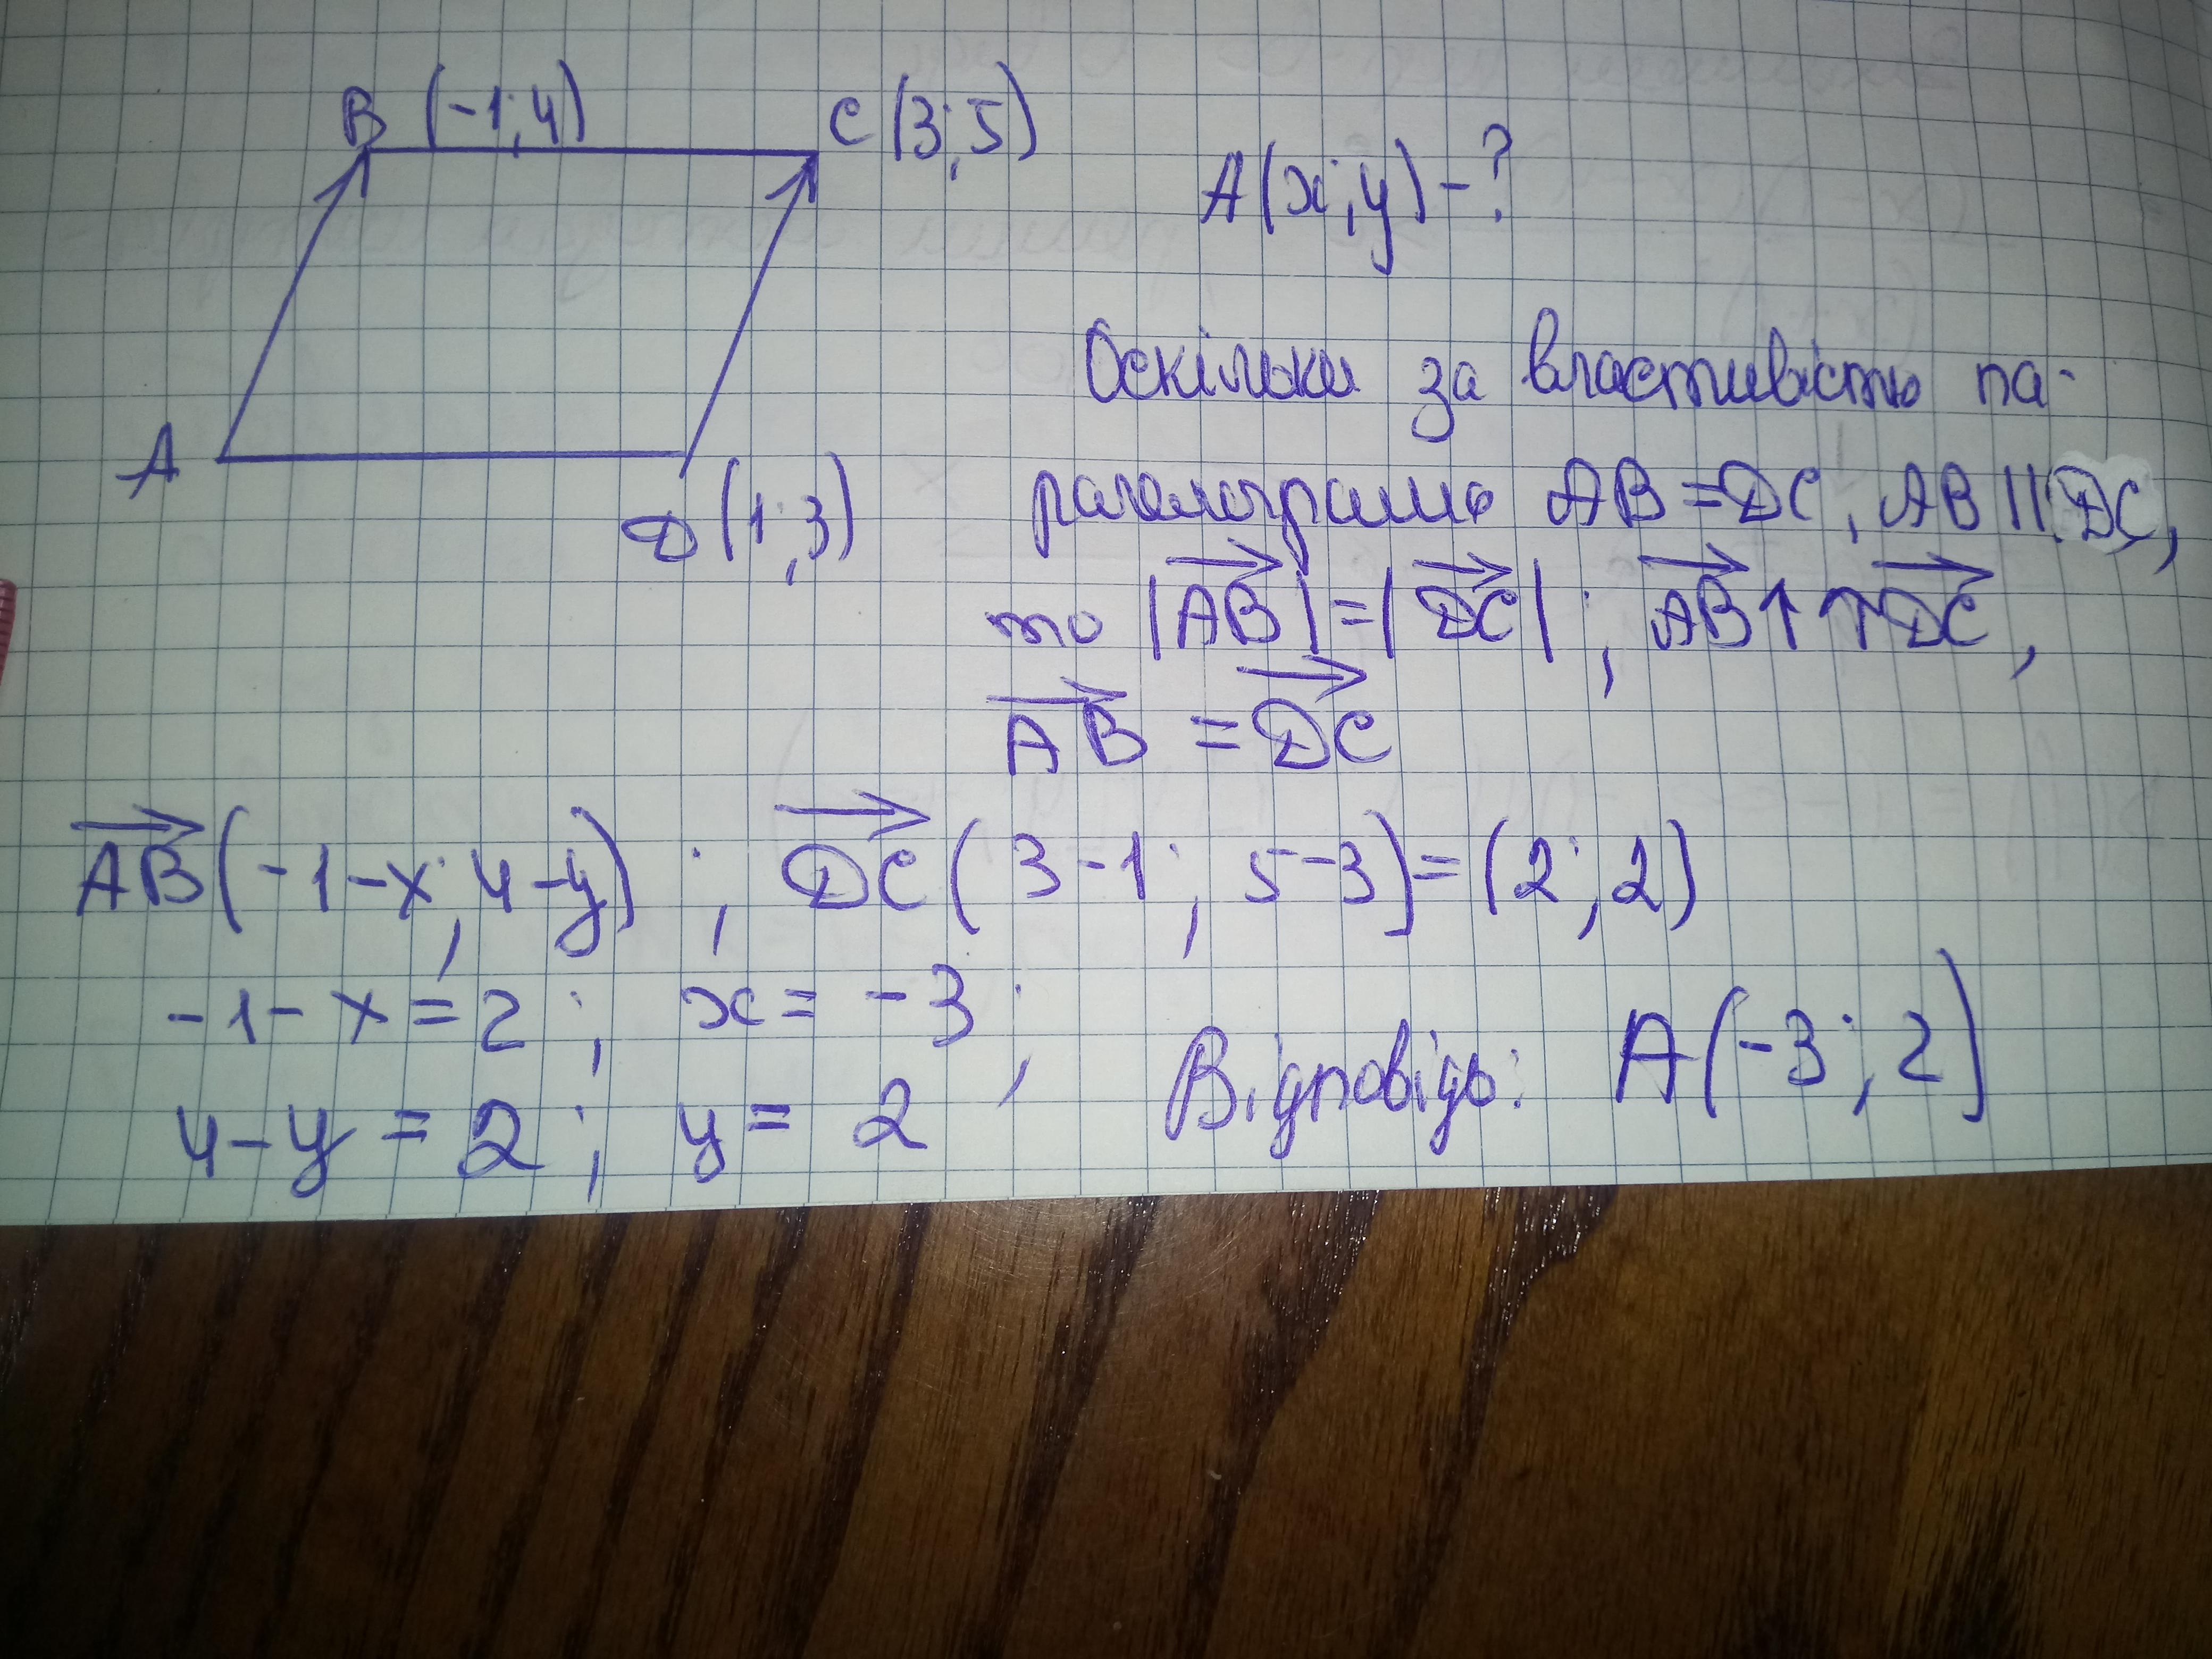 B (-1; 4)
C (3; 5)
A(x; y) - ?
A
D (1; 3)
Оскільки за властивістю па-
ралелограма AB = DC, AB || DC,
то |AB| = |DC|; AB ↑↑ DC,
AB = DC
AB(-1-x; 4-y); DC(3-1; 5-3) = (2; 2)
-1-x=2; x= -3;
4-y = 2; y = 2
Відповідь: A(-3; 2)